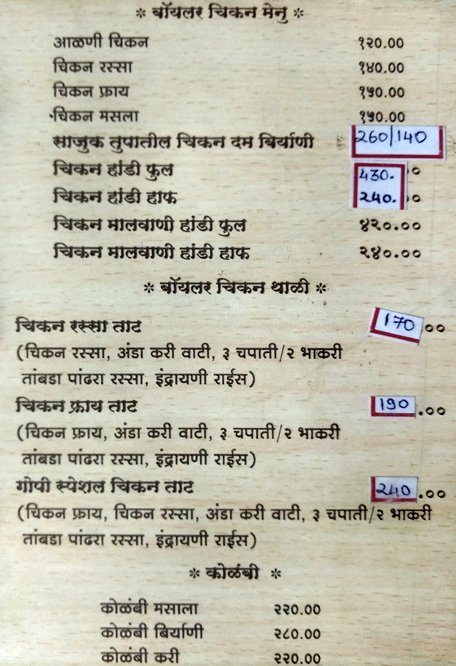 * बॉयलर चिकन मेनु *
आळणी चिकन १२०.००
चिकन रस्सा १४०.००
चिकन फ्राय १५०.००
चिकन मसला १५०.००
साजुक तुपातील चिकन दम बिर्याणी 260/140
चिकन हांडी फुल 430. ०
चिकन हांडी हाफ 240. ०
चिकन मालवाणी हांडी फुल ४२०.००
चिकन मालवाणी हांडी हाफ २४०.००
* बॉयलर चिकन थाळी *
चिकन रस्सा ताट 170 ००
(चिकन रस्सा, अंडा करी वाटी, ३ चपाती/२ भाकरी
तांबडा पांढरा रस्सा, इंद्रायणी राईस)
चिकन फ्राय ताट 190 .००
(चिकन फ्राय, अंडा करी वाटी, ३ चपाती/२ भाकरी
तांबडा पांढरा रस्सा, इंद्रायणी राईस)
गोपी स्पेशल चिकन ताट 240 .००
(चिकन फ्राय, चिकन रस्सा, अंडा करी वाटी, ३ चपाती/२ भाकरी
तांबडा पांढरा रस्सा, इंद्रायणी राईस)
* कोळंबी *
कोळंबी मसाला २२०.००
कोळंबी बिर्याणी २८०.००
कोळंबी करी २२०.००